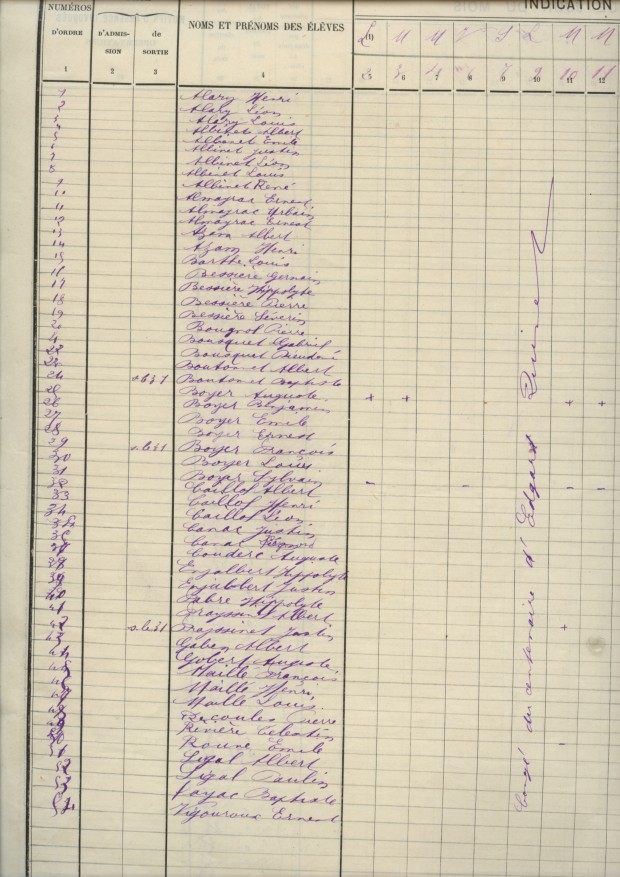 NUMÉROS
INDICATION
D'ORDRE
D'ADMIS-
SION
de
SORTIE
NOMS ET PRÉNOMS DES ÉLÈVES
(1) M M S L M M
1 2 3 4 5 6 7 8 9 10 11 12
1 Alary Henri
2 Alary Léon
3 Alary Louis
4 Albert
5 Albinet Emile
6 Albinet Justin
7 Albinet Léon
8 Albinet Louis
9 Albinet René
Almayrac Ernest
11 Almayrac Urbain
12 Almayrac Ernest
13 Azam Albert
14 Azam Henri
15 Barthe Louis
16 Bessière Germain
17 Bessière Hippolyte
18 Bessière Pierre
19 Bessière Séverin
20 Bougnol Pierre
Bousquet Gabriel
22 Bousquet Dieudoné
Boutonnet Albert
24 Boutonnet Baptiste
25 Boyer Auguste + + + +
26 Boyer Benjamin
27 Boyer Emile
28 Boyer Ernest
29 Boyer François
30 Boyer Louis
31 Boyer Sylvain
Caillol Albert
33 Caillol Henri
34 Caillol Léon
Canac Justin
Canac
37 Couderc Auguste
38 Enjalbert Hippolyte
39 Enjalbert Justin
40 Fabre Hippolyte
41 Frayssinet Albert
42 Frayssinet Justin +
43 Gaben Albert
44 Gobert Auguste
Maillé François
Maillé Henri
Maillé Louis
Recoules Pierre
Rivière Célestin
Emile
Sigal Albert
Sigal Paulin
Fayac Baptiste
Vigouroux Ernest
Congé du centenaire d'Edgard Quinet